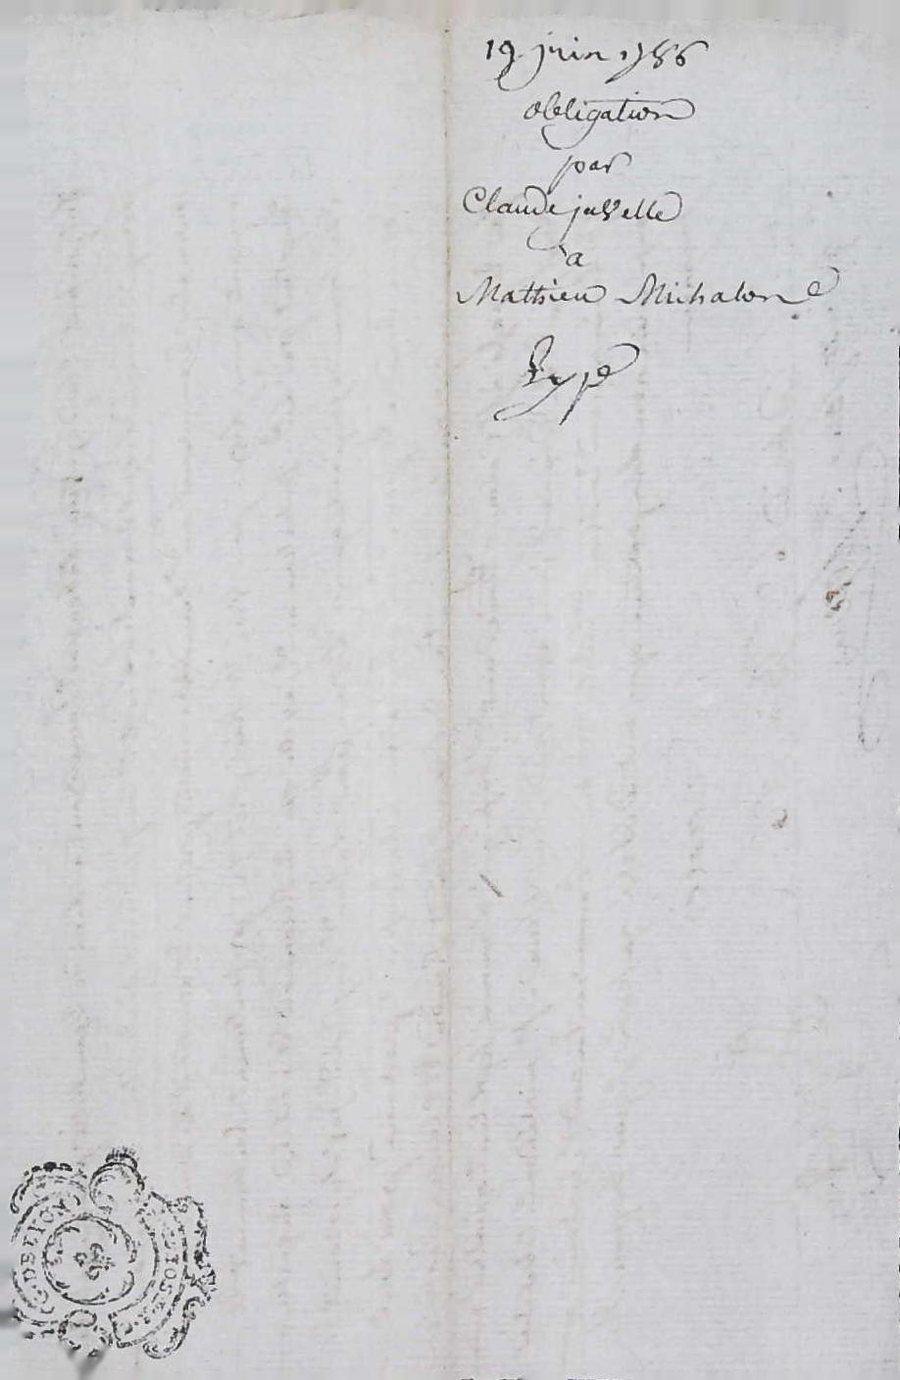 19 juin 1786
obligation
par
Claude juvelle
à
Mathieu Michalon
Exp.é
DE LYON